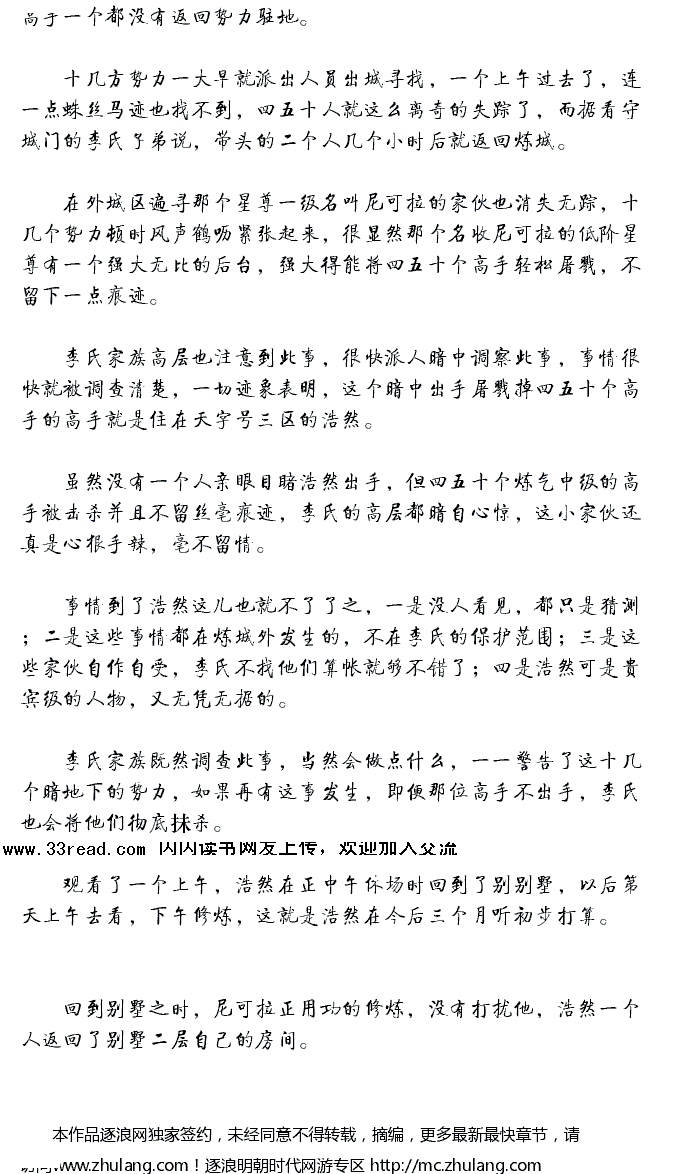 高手一个都没有返回势力驻地。
十几方势力一大早就派出人员出城寻找，一个上午过去了，连
一点蛛丝马迹也找不到，四五十人就这么离奇的失踪了，而据看守
城门的李氏子弟说，带头的二个人几个小时后就返回炼城。
在外城区遍寻那个星尊一级名叫尼可拉的家伙也消失无踪，十
几个势力顿时风声鹤呖紧张起来，很显然那个名收尼可拉的低阶星
尊有一个强大无比的后台，强大得能将四五十个高手轻松屠戮，不
留下一点痕迹。
李氏家族高层也注意到此事，很快派人暗中调察此事，事情很
快就被调查清楚，一切迹象表明，这个暗中出手屠戮掉四五十个高
手的高手就是住在天字号三区的浩然。
虽然没有一个人亲眼目睹浩然出手，但四五十个炼气中级的高
手被击杀并且不留丝毫痕迹，李氏的高层都暗自心惊，这小家伙还
真是心狠手辣，毫不留情。
事情到了浩然这儿也就不了了之，一是没人看见，都只是猜测
；二是这些事情都在炼城外发生的，不在李氏的保护范围；三是这
些家伙自作自受，李氏不找他们算帐就够不错了；四是浩然可是贵
宾级的人物，又无凭无据的。
李氏家族既然调查此事，当然会做点什么，一一警告了这十几
个暗地下的势力，如果再有这事发生，即便那位高手不出手，李氏
也会将他们彻底抹杀。
www.33read.com 闪闪读书网友上传，欢迎加入交流
观看了一个上午，浩然在正中午休场时回到了别别墅，以后第
天上午去看，下午修炼，这就是浩然在今后三个月听初步打算。
回到别墅之时，尼可拉正用功的修炼，没有打扰他，浩然一个
人返回了别墅二层自己的房间。
本作品逐浪网独家签约，未经同意不得转载，摘编，更多最新最快章节，请
访问www.zhulang.com！逐浪明朝时代网游专区 http://mc.zhulang.com